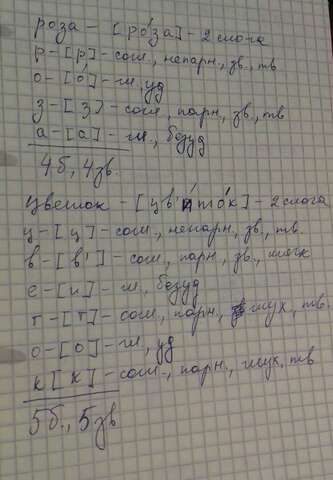 роза – [ро́за] – 2 слога
р – [р] – согл., непарн., зв., тв
о – [о́] – гл., уд
з – [з] – согл., парн., зв., тв
а – [а] – гл., безуд
4б, 4зв.
цветок – [цв'ито́к] – 2 слога
ц – [ц] – согл., непарн., зв., тв.
в – [в'] – согл., парн., зв., мягк
е – [и] – гл., безуд
т – [т] – согл., парн., глух., тв.
о – [о] – гл., уд
к [к] – согл., парн., глух, тв
5б., 5зв